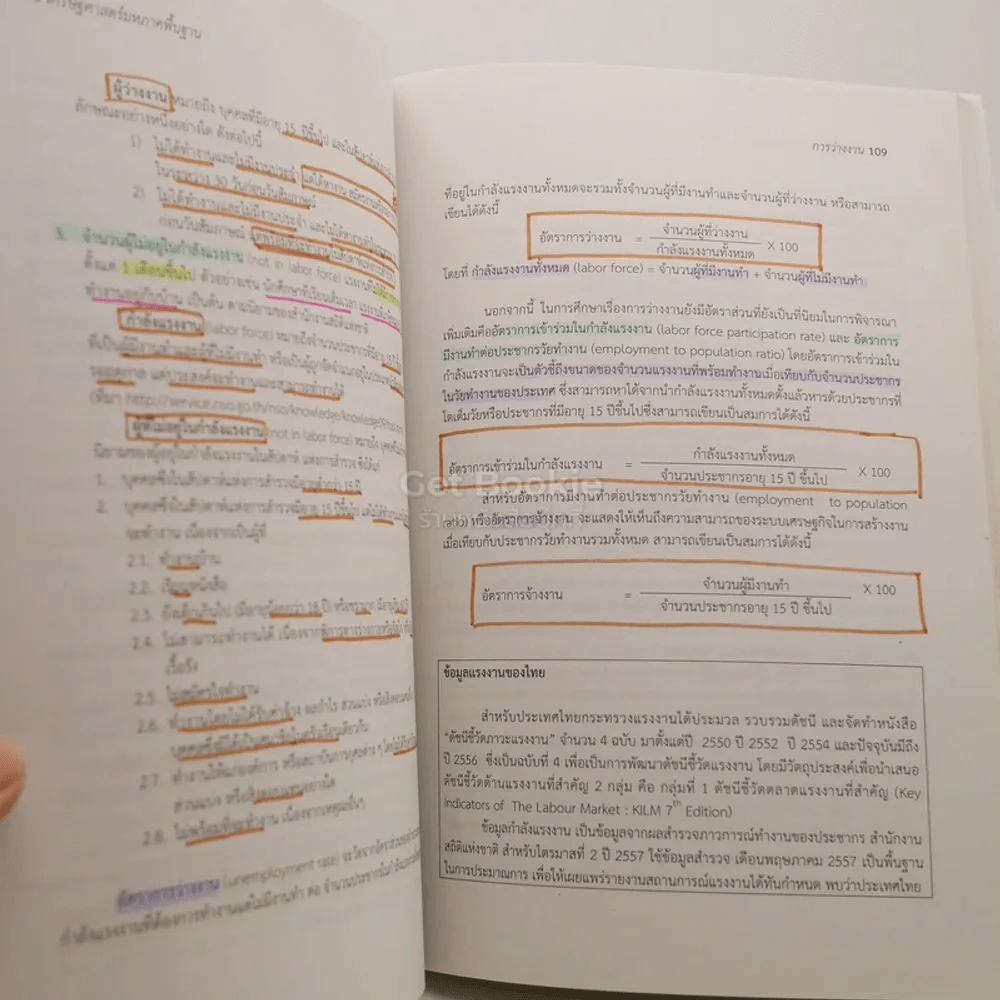 เศรษฐศาสตร์มหภาคพื้นฐาน
ผู้ว่างงาน หมายถึง บุคคลที่มีอายุ 15 ปีขึ้นไป และในสัปดาห์
ลักษณะอย่างหนึ่งอย่างใด ดังต่อไปนี้
1) ไม่ได้ทำงานและไม่มีงานประจำ แต่ได้หางาน สมัครงาน
ในระหว่าง 30 วันก่อนวันสัมภาษณ์
2) ไม่ได้ทำงานและไม่มีงานประจำ และไม่ได้หางาน
ก่อนวันสัมภาษณ์
3. จำนวนผู้ไม่อยู่ในกำลังแรงงาน (not in labor force)
ตั้งแต่ 1 เดือนขึ้นไป ตัวอย่างเช่น นักศึกษาที่เรียนเต็มเวลา
ทำงานอยู่กับบ้าน เป็นต้น ตามนิยามของสำนักงานสถิติแห่งชาติ
กำลังแรงงาน (labor force) หมายถึงจำนวนประชากรที่มีอายุ
ที่เป็นผู้มีงานทำและผู้ที่ไม่มีงานทำ หรือเป็นผู้ถูกจัดจำแนกอยู่ใน
รอฤดูกาล แต่ประสงค์จะทำงานและสามารถทำงานได้
(ที่มา http://service.nso.go.th/nso/knowledge/
ผู้ที่ไม่อยู่ในกำลังแรงงาน (not in labor force) หมายถึง บุคคล
นิยามของผู้อยู่ในกำลังแรงงานในสัปดาห์ แห่งการสำรวจ ซึ่งได้แก่
1. บุคคลซึ่งในสัปดาห์แห่งการสำรวจมีอายุต่ำกว่า 15 ปี
2. บุคคลซึ่งในสัปดาห์แห่งการสำรวจมีอายุ 15 ปีขึ้นไป แต่ไม่ได้ทำงาน
จะทำงาน เนื่องจากเป็นผู้ที่
2.1. ทำงานบ้าน
2.2. เรียนหนังสือ
2.3. ยังเด็กเกินไป (มีอายุน้อยกว่า 18 ปี) หรือชรามาก
2.4. ไม่สามารถทำงานได้ เนื่องจากพิการทางร่างกายหรือจิตใจ
เรื้อรัง
2.5. ไม่สมัครใจทำงาน
2.6. ทำงานโดยไม่ได้รับค่าจ้าง ผลกำไร ส่วนแบ่ง หรือสิ่งตอบแทน
บุคคลซึ่งมิได้เป็นสมาชิกในครัวเรือนเดียวกัน
2.7. ทำงานให้แก่องค์การ หรือสถาบันการกุศลต่าง ๆ โดยไม่ได้รับ
ส่วนแบ่ง หรือสิ่งตอบแทนอย่างใด
2.8. ไม่พร้อมที่จะทำงาน เนื่องจากเหตุผลอื่นๆ
อัตราการว่างงาน (unemployment rate) จะวัดจาก
กำลังแรงงานที่ต้องการทำงานแต่ไม่มีงานทำ คือ จำนวนประชากรใน
การว่างงาน 109
ที่อยู่ในกำลังแรงงานทั้งหมดจะรวมทั้งจำนวนผู้ที่มีงานทำและจำนวนผู้ที่ว่างงาน หรือสามารถ
เขียนได้ดังนี้
อัตราการว่างงาน = จำนวนผู้ที่ว่างงาน X 100
กำลังแรงงานทั้งหมด
โดยที่ กำลังแรงงานทั้งหมด (labor force) = จำนวนผู้ที่มีงานทำ + จำนวนผู้ที่ไม่มีงานทำ
นอกจากนี้ ในการศึกษาเรื่องการว่างงานยังมีอัตราส่วนที่ยังเป็นที่นิยมในการพิจารณา
เพิ่มเติมคืออัตราการเข้าร่วมในกำลังแรงงาน (labor force participation rate) และ อัตราการ
มีงานทำต่อประชากรวัยทำงาน (employment to population ratio) โดยอัตราการเข้าร่วมใน
กำลังแรงงานจะเป็นตัวชี้ถึงขนาดของจำนวนแรงงานที่พร้อมทำงานเมื่อเทียบกับจำนวนประชากร
ในวัยทำงานของประเทศ ซึ่งสามารถหาได้จากนำกำลังแรงงานทั้งหมดตั้งแล้วหารด้วยประชากรที่
โตเต็มวัยหรือประชากรที่มีอายุ 15 ปีขึ้นไปซึ่งสามารถเขียนเป็นสมการได้ดังนี้
อัตราการเข้าร่วมในกำลังแรงงาน = กำลังแรงงานทั้งหมด X 100
จำนวนประชากรอายุ 15 ปี ขึ้นไป
Get Bookie
สำหรับอัตราการมีงานทำต่อประชากรวัยทำงาน (employment to population
ratio) หรืออัตราการจ้างงาน จะแสดงให้เห็นถึงความสามารถของระบบเศรษฐกิจในการสร้างงาน
เมื่อเทียบกับประชากรวัยทำงานรวมทั้งหมด สามารถเขียนเป็นสมการได้ดังนี้
อัตราการจ้างงาน = จำนวนผู้มีงานทำ X 100
จำนวนประชากรอายุ 15 ปี ขึ้นไป
ข้อมูลแรงงานของไทย
สำหรับประเทศไทยกระทรวงแรงงานได้ประมวล รวบรวมดัชนี และจัดทำหนังสือ
"ดัชนีชี้วัดภาวะแรงงาน" จำนวน 4 ฉบับ มาตั้งแต่ปี 2550 ปี 2552 ปี 2554 และปัจจุบันมีถึง
ปี 2556 ซึ่งเป็นฉบับที่ 4 เพื่อเป็นการพัฒนาดัชนีชี้วัดแรงงาน โดยมีวัตถุประสงค์เพื่อนำเสนอ
ดัชนีชี้วัดด้านแรงงานที่สำคัญ 2 กลุ่ม คือ กลุ่มที่ 1 ดัชนีชี้วัดตลาดแรงงานที่สำคัญ (Key
Indicators of The Labour Market : KILM 7th Edition)
ข้อมูลกำลังแรงงาน เป็นข้อมูลจากผลสำรวจภาวการณ์ทำงานของประชากร สำนักงาน
สถิติแห่งชาติ สำหรับไตรมาสที่ 2 ปี 2557 ใช้ข้อมูลสำรวจ เดือนพฤษภาคม 2557 เป็นพื้นฐาน
ในการประมาณการ เพื่อให้เผยแพร่รายงานสถานการณ์แรงงานได้ทันกำหนด พบว่าประเทศไทย